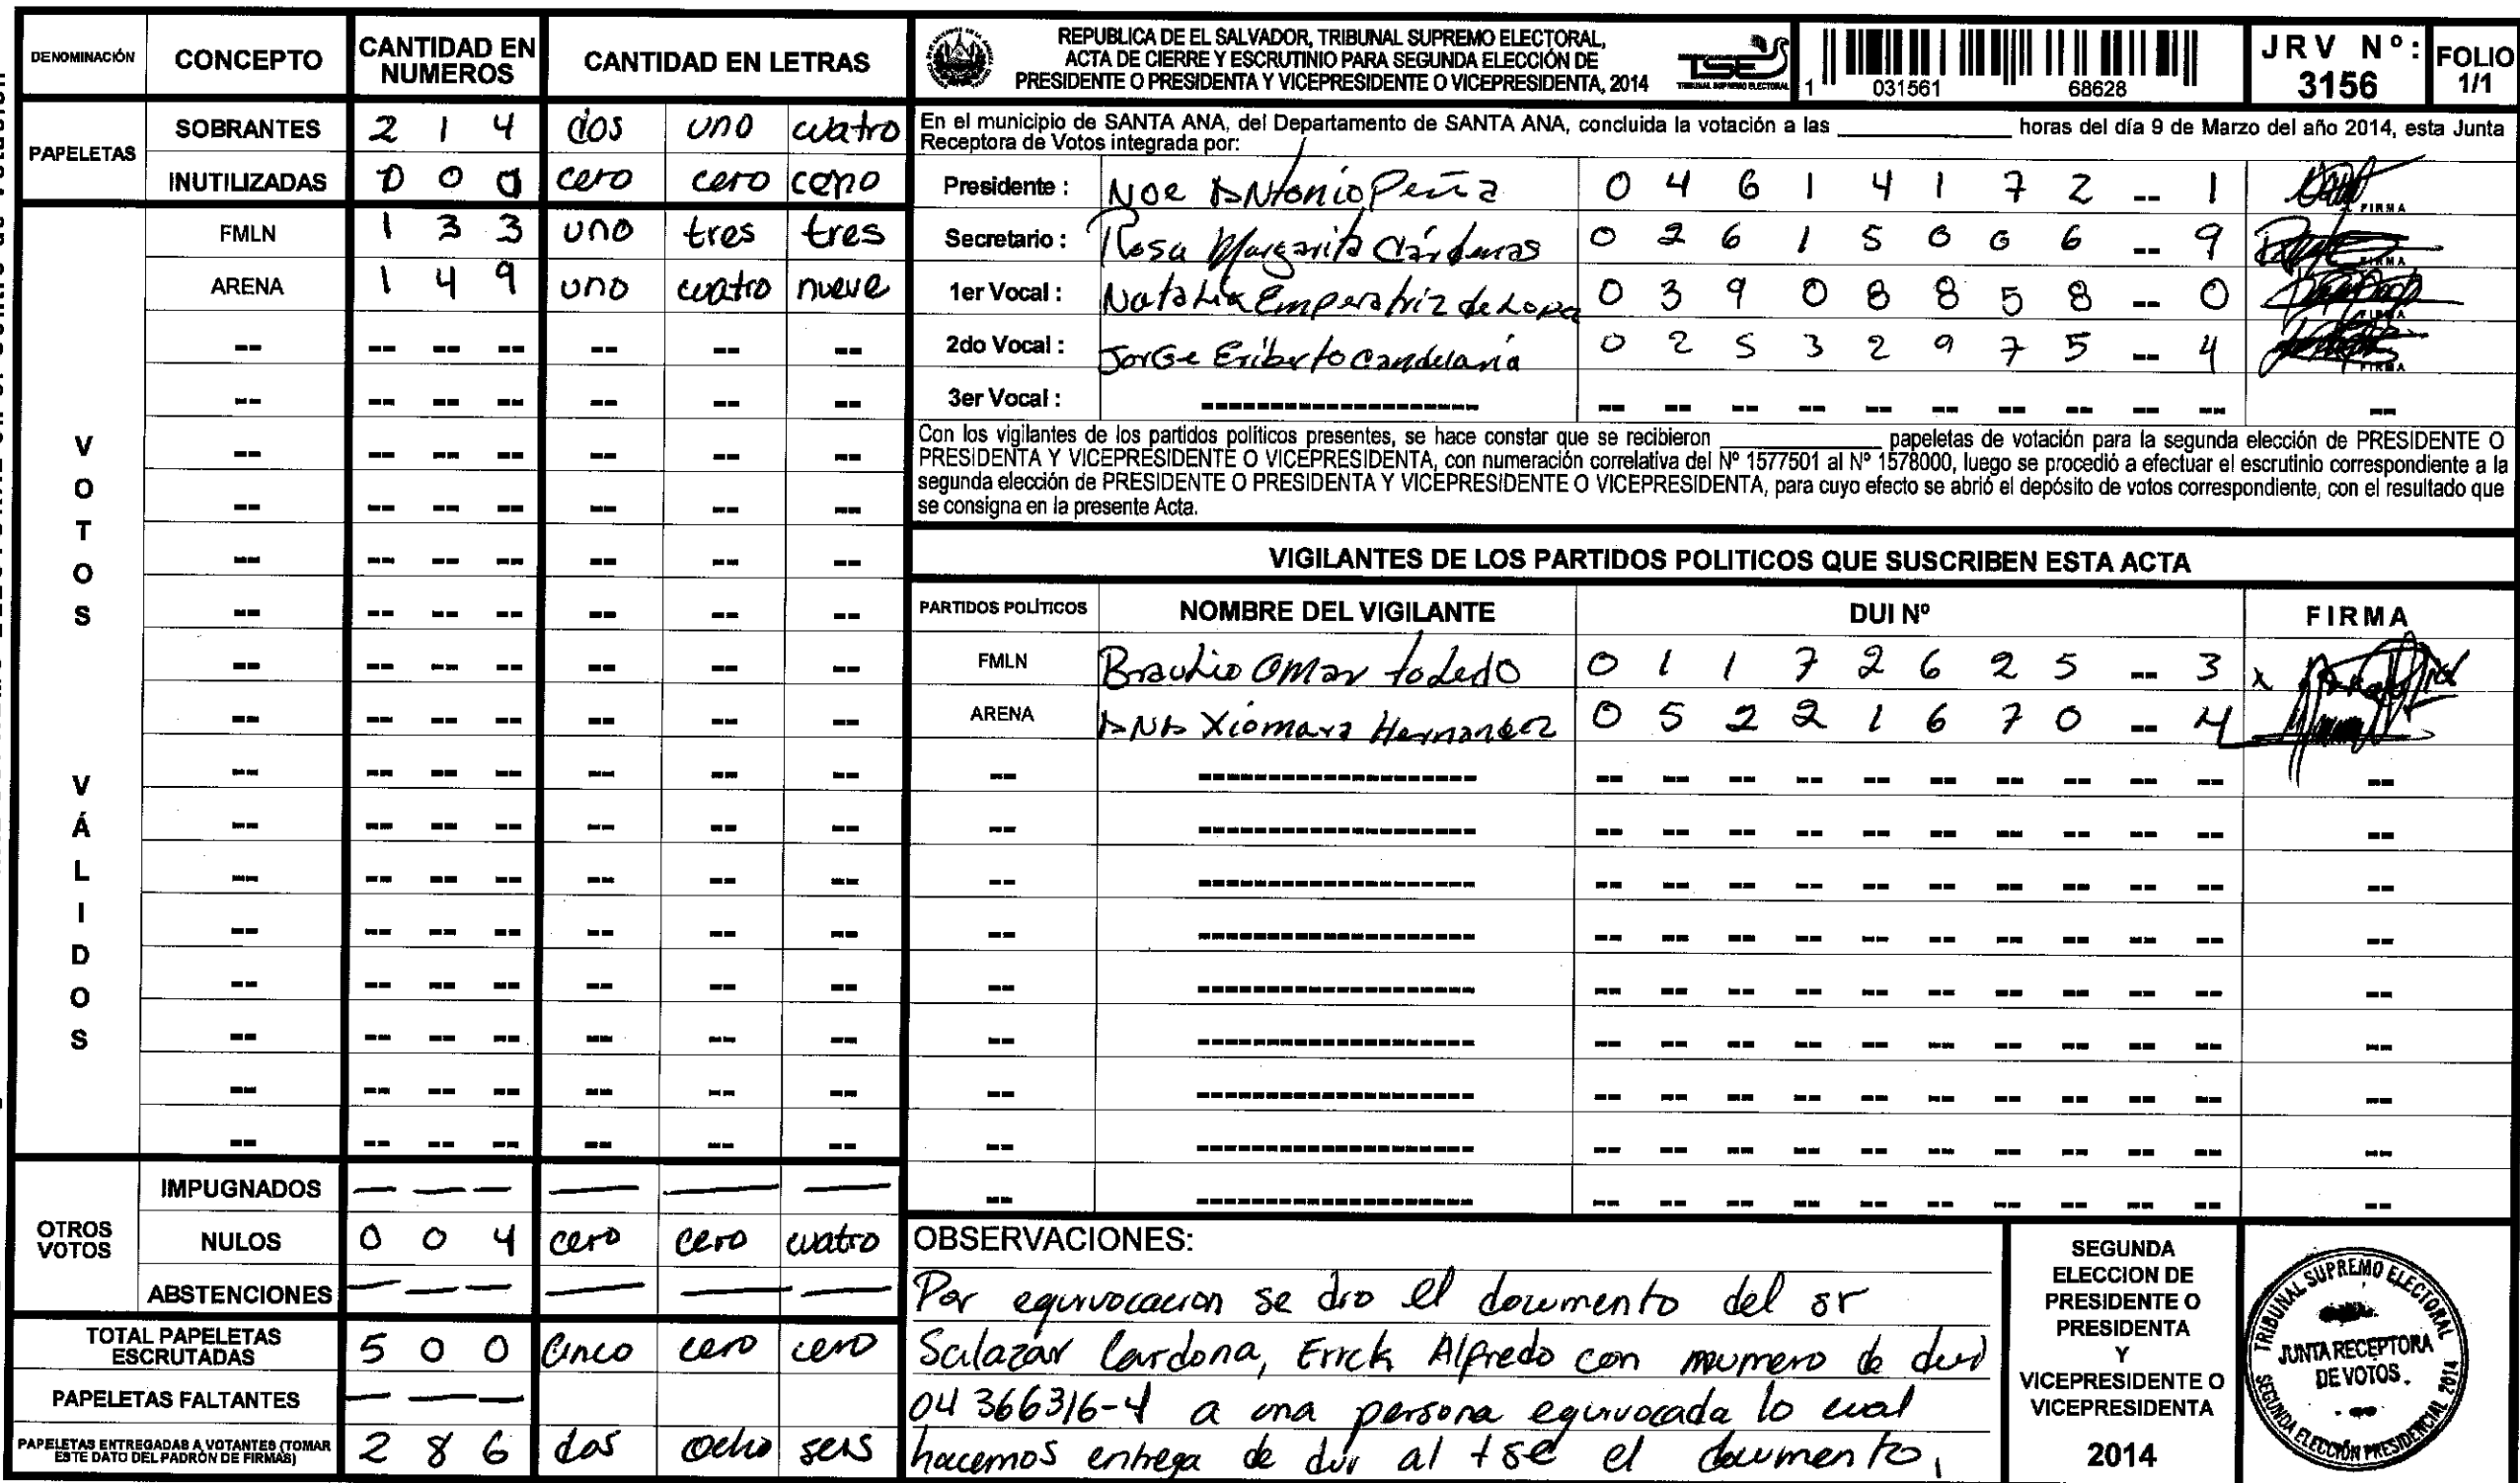 DENOMINACIÓN CONCEPTO CANTIDAD EN NUMEROS CANTIDAD EN LETRAS
PAPELETAS
SOBRANTES 2 1 4 dos uno cuatro
INUTILIZADAS 0 0 0 cero cero cero
VOTOS VÁLIDOS
FMLN 1 3 3 uno tres tres
ARENA 1 4 9 uno cuatro nueve
OTROS VOTOS
IMPUGNADOS — — — — — —
NULOS 0 0 4 cero cero cuatro
ABSTENCIONES — — — — — —
TOTAL PAPELETAS ESCRUTADAS 5 0 0 Cinco cero cero
PAPELETAS FALTANTES — — —
PAPELETAS ENTREGADAS A VOTANTES (TOMAR ESTE DATO DEL PADRÓN DE FIRMAS) 2 8 6 dos ocho seis
REPUBLICA DE EL SALVADOR, TRIBUNAL SUPREMO ELECTORAL,
ACTA DE CIERRE Y ESCRUTINIO PARA SEGUNDA ELECCIÓN DE
PRESIDENTE O PRESIDENTA Y VICEPRESIDENTE O VICEPRESIDENTA, 2014
TSE
TRIBUNAL SUPREMO ELECTORAL
1 031561 68628
JRV Nº: 3156
FOLIO 1/1
En el municipio de SANTA ANA, del Departamento de SANTA ANA, concluida la votación a las ____ horas del día 9 de Marzo del año 2014, esta Junta
Receptora de Votos integrada por:
Presidente : Noe Antonio Peña 0 4 6 1 4 1 7 2 -- 1 FIRMA
Secretario : Rosa Margarita Cárdenas 0 2 6 1 5 0 0 6 -- 9 FIRMA
1er Vocal : Natalia Emperatriz de 0 3 9 0 8 8 5 8 -- 0 FIRMA
2do Vocal : Jorge Eriberto Candelaria 0 2 5 3 2 9 7 5 -- 4 FIRMA
3er Vocal :
Con los vigilantes de los partidos políticos presentes, se hace constar que se recibieron ____ papeletas de votación para la segunda elección de PRESIDENTE O
PRESIDENTA Y VICEPRESIDENTE O VICEPRESIDENTA, con numeración correlativa del Nº 1577501 al Nº 1578000, luego se procedió a efectuar el escrutinio correspondiente a la
segunda elección de PRESIDENTE O PRESIDENTA Y VICEPRESIDENTE O VICEPRESIDENTA, para cuyo efecto se abrió el depósito de votos correspondiente, con el resultado que
se consigna en la presente Acta.
VIGILANTES DE LOS PARTIDOS POLITICOS QUE SUSCRIBEN ESTA ACTA
PARTIDOS POLÍTICOS NOMBRE DEL VIGILANTE DUI Nº FIRMA
FMLN Braulio Omar toledo 0 1 1 7 2 6 2 5 -- 3 x
ARENA ANA Xiomara Hernandez 0 5 2 2 1 6 7 0 -- 4
OBSERVACIONES:
Por equivocacion se dio el documento del sr
Salazar Cardona, Erick Alfredo con numero de dui
04366316-4 a una persona equivocada lo cual
hacemos entrega de dui al tse el documento,
SEGUNDA
ELECCION DE
PRESIDENTE O
PRESIDENTA
Y
VICEPRESIDENTE O
VICEPRESIDENTA
2014
TRIBUNAL SUPREMO ELECTORAL
JUNTA RECEPTORA
DE VOTOS.
SEGUNDA ELECCIÓN PRESIDENCIAL 2014